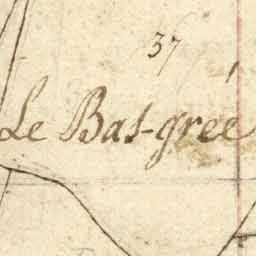 37
Le Bas-gree